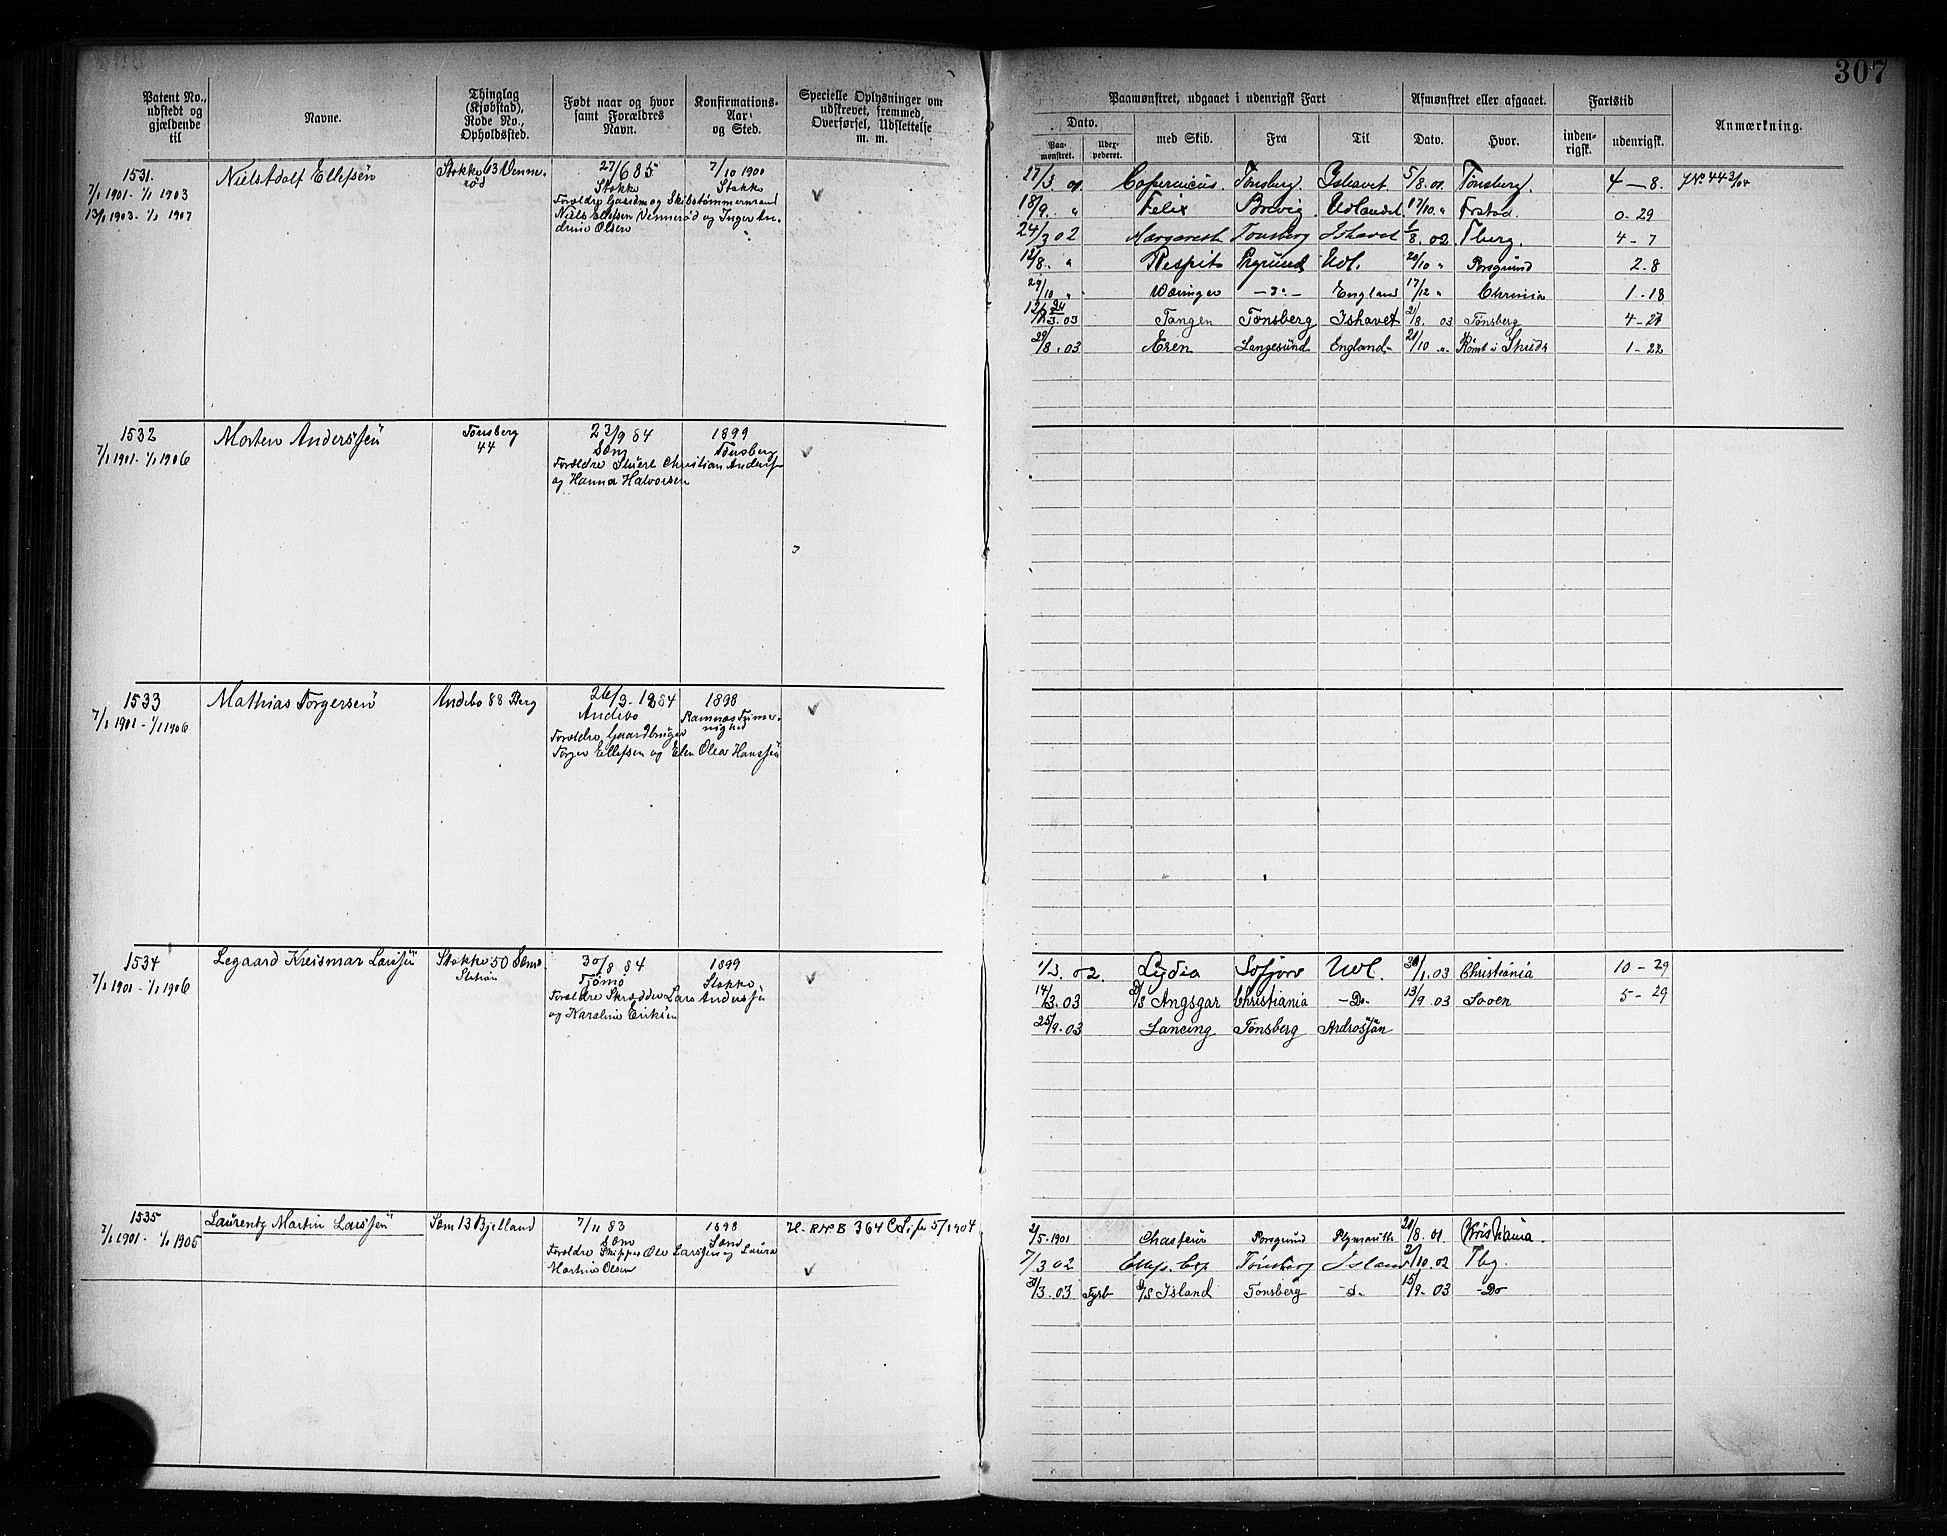 307
Patent No., udstedt og gjældende til
Navne.
Thinglag (Kjøbstad), Rode No., Opholdssted.
Født naar og hvor samt Forældres Navn.
Konfirmations-Aar og Sted.
Specielle Oplysninger om udskrevet, fremmed, Overførsel, Udslettelse m. m.
Paamønstret, udgaaet i udenrigsk Fart
Afmønstret eller afgaaet.
Fartstid
Anmærkning.
Dato.
Paamønstret.
Uderpederet.
med Skib.
Fra
Til
Dato.
Hvor.
indenrigsk.
udenrigsk.
1531.
7/1 1901 - 1/1 1903
13/1 1903 - 1/1 1907
Niels Adolf Ellefsen
Stokke 63 Vennerød
27/6 85
Stokke
Forældre Gaardm og Skibstømmermand
Niels Ellefsen Vennerød og Inger Andrine Olsen
7/10 1900
Stokke
17/3 01 Copernicus Tønsberg Ishavet 5/8 01 Tønsberg. 4 - 8. J.No 44 3/04
18/9 " Felix Brevig Udlandet 17/10 " Frstad 0 - 29
24/3 02 Margareth Tønsberg Ishavet 8. 02 Tberg. 4 - 7
12/8. " Respit Prgrund Udl. 20/10 " Porsgrund 2 - 8
29/10 " Væringer - d: - England 17/12 " Chrania 1 - 18
3. 03 Tangen Tønsberg Ishavet 21/8. 03 Tønsberg 4 - 27
29/8. 03 Aren Langesund England 21/10 " Rømt i Shields 1 - 22
1532
7/1 1901 - 1/1 1906
Morten Anderssen
Tønsberg
44
23/9 84
Sem
Forældre Stuert Christian Anders
og Hanna Halvorsen
1899
Tønsberg
1533
7/1 1901 - 1/1 1906
Mathias Torgersen
Andebo 88 Berg
26/3 - 1884
Andebo
Forældre Gaardbruger
Torger Ellefsen og Elen Olea Hanssen
1898
Ramnæs Frimenighed
1534
7/1 1901 - 1/1 1906
Legaard Kreismar Larssen
Stokke 50 Sem
30/8 84
Tjømø
Forældre Skrædder Lars Anderssen
og Karoline Eriksen
1899
Stokke
1/3. 02 Lydia Sofjord Udl. 30/1. 03 Christiania 10 - 29
14/3. 03 D/S Angsgar Christiania - Do - 13/9. 03 Soven 5 - 29
25/9. 03 Lancing Tønsberg Androssan
1535
7/1 1901 - 1/1 1905
Laurentz Martin Larssen
Sem 13 Bjelland
7/11 83
Sem
Forældre Skipper Ole Larssen og Laura
Martine Olsen
1898
Sem
364 5/1 1904
2/5 - 1901 Porsgrund Plymouth 20/8. 01. Kristiania.
7/3 02 Tønsberg Island 2/10. 02 Tbg.
3. 03 Fyrb D/S Island Tønsberg - d. - 15/9 - 03 - Do